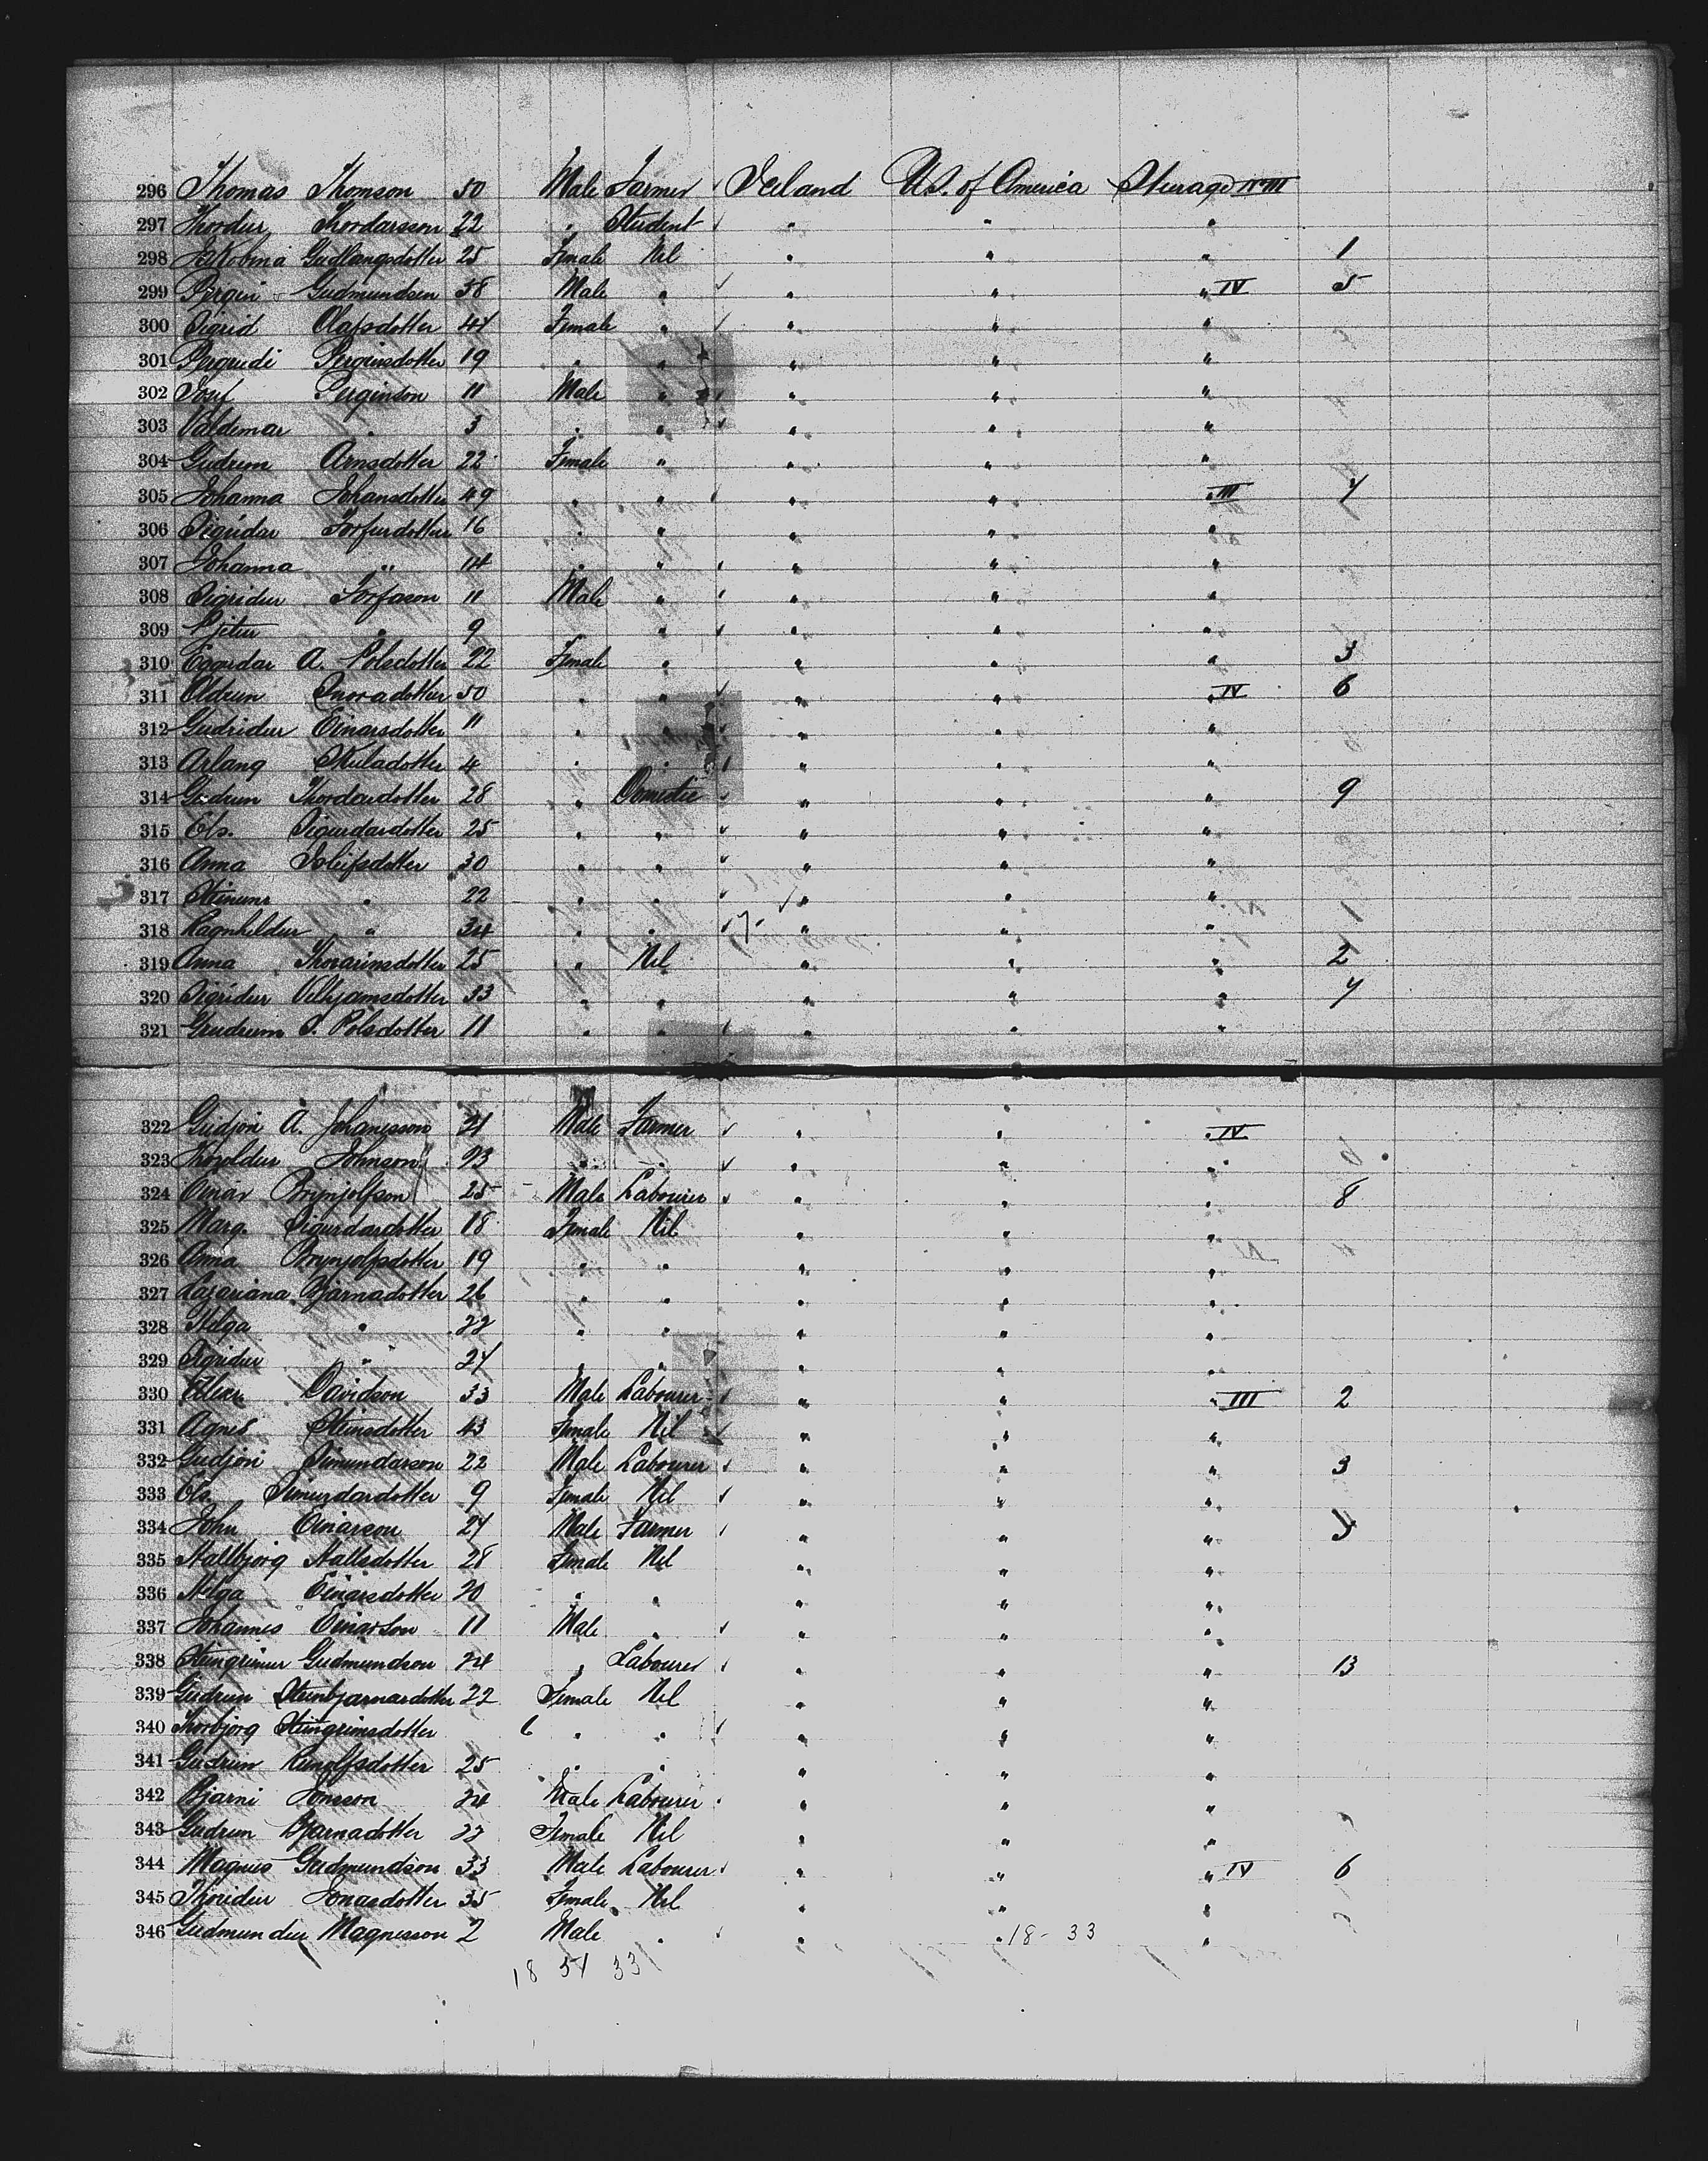 296 Thomas Thomson 50 Male Farmer Iceland U.S. of America Steerage No III
297 Thordur Thordarsson 22 " Student " " "
298 Jakobina Gudlangsdotter 25 Female Nil " " " 1
299 Pergin Gudmundsen 58 Male " " " " IV 5
300 Sigrid Olafsdotter 44 Female " " " "
301 Pergudi Perginsdotter 19 " " " " "
302 Josef Perginson 11 Male " " " "
303 Valdemar " 3 " " " " "
304 Gudrun Arnsdotter 22 Female " " " "
305 Johanna Johansdotter 49 " " " " " III 7
306 Sigridar Torfurdotter 16 " " " " "
307 Johanna " 14 " " " " "
308 Sigridur Torfason 11 Male " " " "
309 Pjetur " 9 " " " "
310 A. Polsdotter 22 Female " " " " 3
311 Oldrun Snoradotter 50 " " " " " IV 6
312 Gudridur Einarsdotter 11 " " " " "
313 Arlang Skuladotter 4 " " " " "
314 Gudrun Thordardotter 28 " Domestic " " " 9
315 Ols. Sigurdardotter 25 " " " " "
316 Anna Isleifsdotter 30 " " " " "
317 Steinunr " 22 " " " " "
318 Ragnheldur " 34 " " " " "
319 Anna Thorarinsdotter 25 " Nil " " " 2
320 Sigridur Vilhjamsdotter 33 " " " " " 7
321 Grudrum S. Polsdotter 11 " " " " "
322 Gudjon A. Johanesson 21 Male Farmer " " " IV
323 Johnson 23 " " " " "
324 Einar Brynjolfson 25 Male Labourer " " " 8
325 Marg. Sigurdardotter 18 Female Nil " " "
326 Anna Brynjolfsdotter 19 " " " " "
327 Lazariana Bjarnadotter 26 " " " " "
328 Helga " 22 " " " " "
329 Sigridur " 24 " " " " "
330 Davidson 33 Male Labourer " " " III 2
331 Agnes Steinsdotter 43 Female Nil " " "
332 Gudjon Simundarson 22 Male Labourer " " " 3
333 Ols. Simundardotter 9 Female Nil " " "
334 John Einarson 27 Male Farmer " " " 5
335 Hallbjorg Hallsdotter 28 Female Nil " " "
336 Helga Einarsdotter 20 " " " " "
337 Johannes Einarson 11 Male " " " "
338 Steingrimur Gudmundson 24 " Labourer " " " 13
339 Gudrun Steinbjarnardotter 22 Female Nil " " "
340 Thorbjorg Steingrimsdotter 6 " " " " "
341 Gudrun Runolfsdotter 25 " " " " "
342 Bjarni Jonsson 24 Male Labourer " " "
343 Gudrun Bjarnadotter 22 Female Nil " " "
344 Magnus Gudmundson 33 Male Labourer " " " IV 6
345 Thoridur Jonasdotter 35 Female Nil " " "
346 Gudmundur Magnesson 2 Male " " " 18 - 33 "
18 51 33